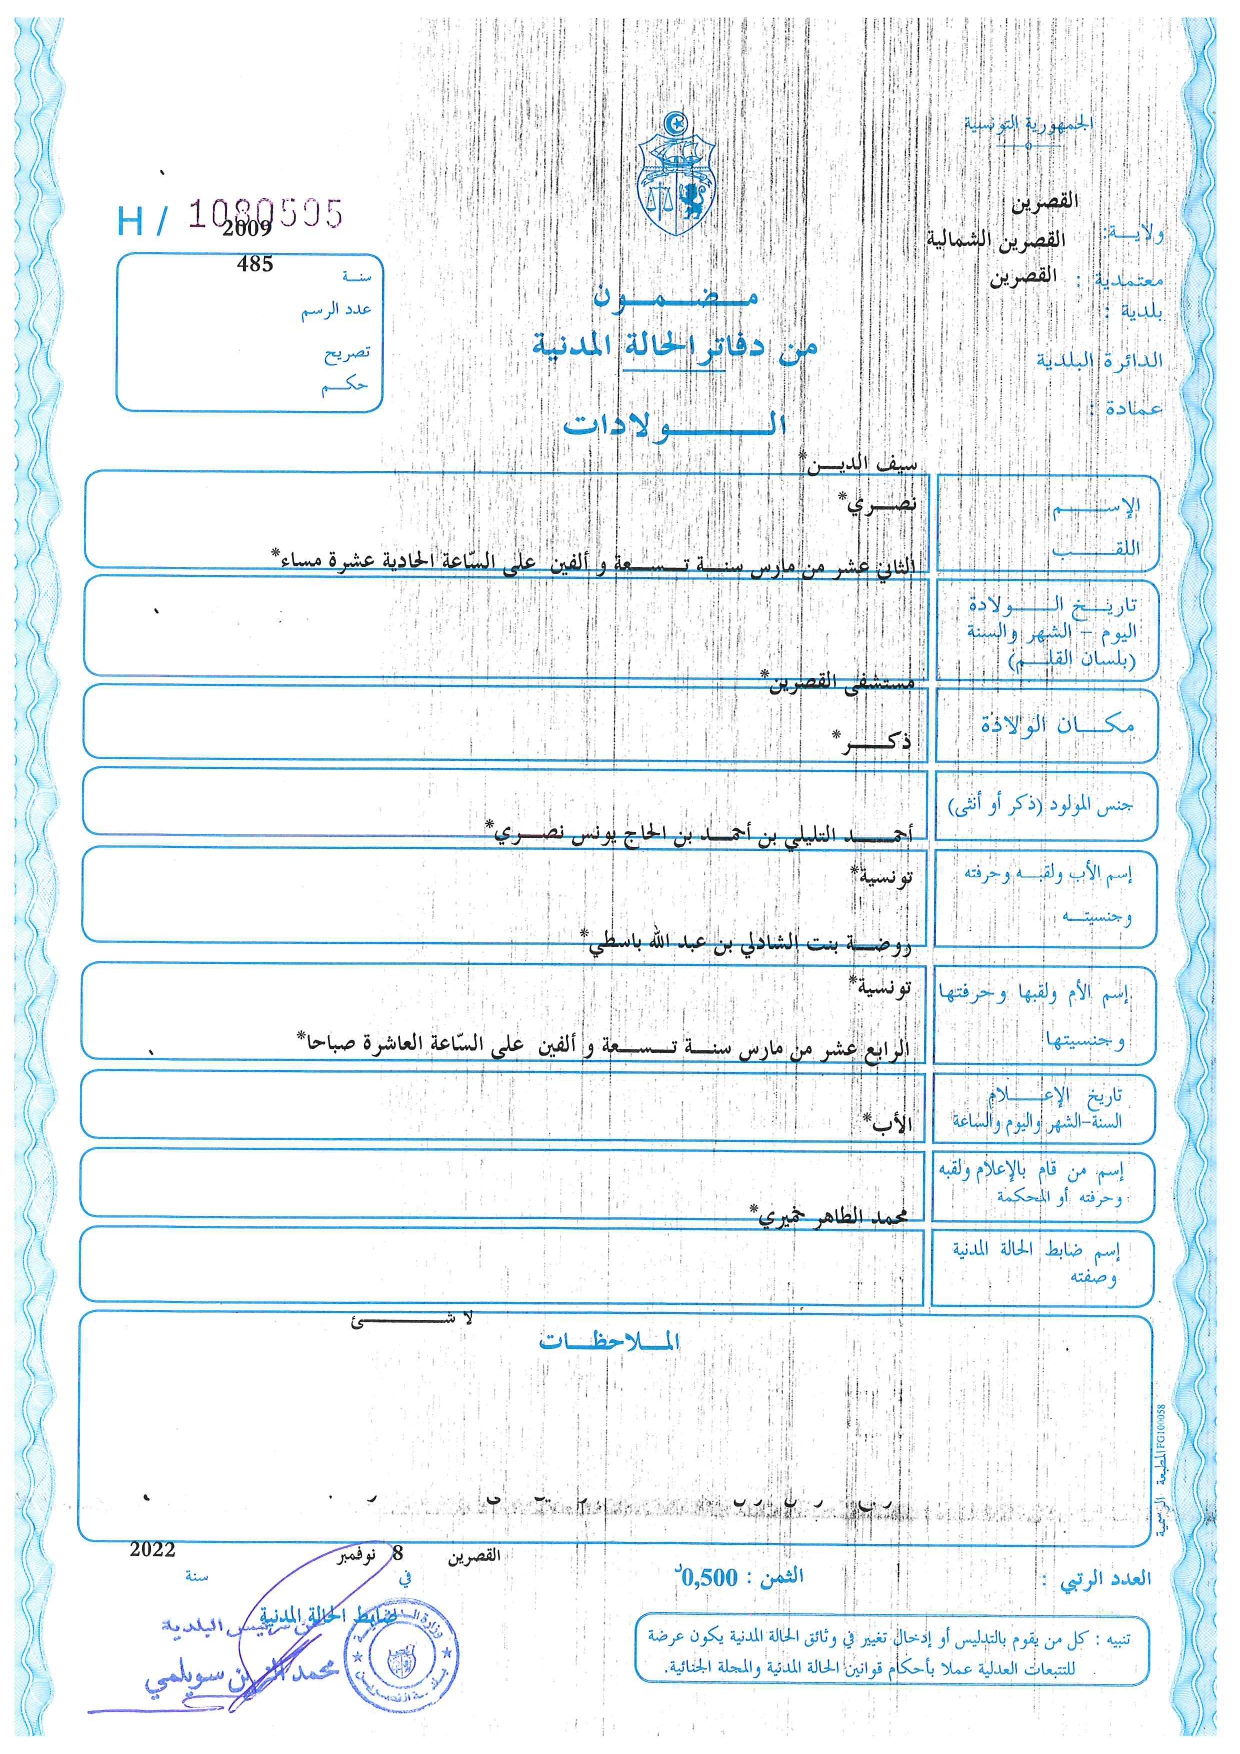 الجمهورية التونسية
H / 1080505
القصرين
2009
ولايـــة:
القصرين الشمالية
485
معتمدية :
القصرين
سنــة
بلدية :
عدد الرسم
مـــضـــمـــون
من دفاتر الحالة المدنية
الدائرة البلدية
تصريح
حكـــم
عمادة :
الـــــــولادات
سيف الديـــن*
الإســــــم
نصــري*
اللقـــــب
الثاني عشر من مارس سنـــة تـــســـعة و ألفين على السّاعة الحادية عشرة مساء*
تاريـــخ الـــــولادة
اليوم – الشهر والسنة
(بلسان القلـــم)
مستشفى القصرين*
مكـــان الولادة
ذكـــــر*
جنس المولود (ذكر أو أنثى)
أحمـــــد التليلي بن أحمـــد بن الحاج يونس نصـــري*
إسم الأب ولقبـــه وحرفته
تونسية*
وجنسيتـــه
روضـــة بنت الشاذلي بن عبد الله باسطي*
إسم الأم ولقبها وحرفتها
تونسية*
وجنسيتها
الرابع عشر من مارس سنـــة تـــســـعة و ألفين على السّاعة العاشرة صباحا*
تاريخ الإعـــــلام
السنة-الشهر واليوم والساعة
الأب*
إسم من قام بالإعلام ولقبه
وحرفته أو المحكمة
محمد الطاهر خميري*
إسم ضابط الحالة المدنية
وصفته
لا شـــــــــئ
المـــلاحظـــات
المطبعة الرسمية FG100058
القصرين 8 نوفمبر 2022
العدد الرتبي :
الثمن : 0,500د
في
سنة
ضابط الحالة المدنية
رئيس البلدية
تنبيه : كل من يقوم بالتدليس أو إدخال تغيير في وثائق الحالة المدنية يكون عرضة
للتتبعات العدلية عملا بأحكام قوانين الحالة المدنية والمجلة الجنائية.
سويلمي